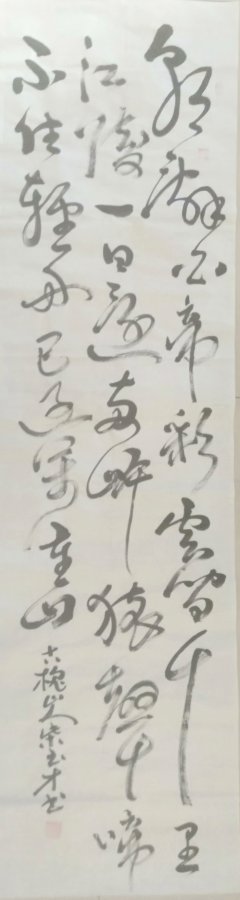 朝辭白帝彩雲間千里
江陵一日還兩岸猿聲啼
不住輕舟已過萬重山
古槐